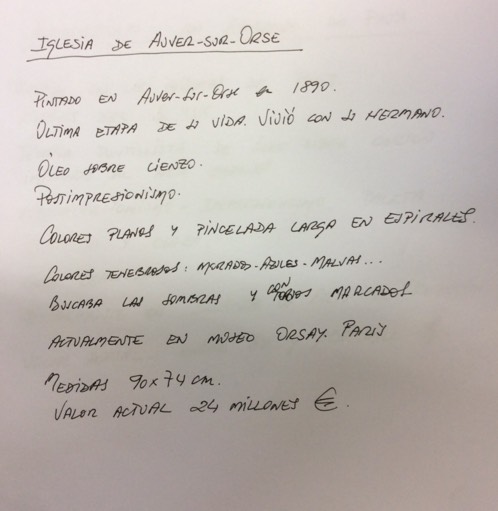 IGLESIA DE AUVER-SUR-ORSE
PINTADO EN AUVER-SUR-ORSE EN 1890.
ÚLTIMA ETAPA DE SU VIDA. VIVIÓ CON SU HERMANO.
ÓLEO SOBRE LIENZO.
POSTIMPRESIONISMO.
COLORES PLANOS Y PINCELADA LARGA EN ESPIRALES.
COLORES TENEBROSOS: MORADOS-AZULES-MALVAS...
BUSCABA LAS SOMBRAS Y CONTORNOS MARCADOS
ACTUALMENTE EN MUSEO ORSAY. PARIS
MEDIDAS 90x74 cm.
VALOR ACTUAL 24 MILLONES €.